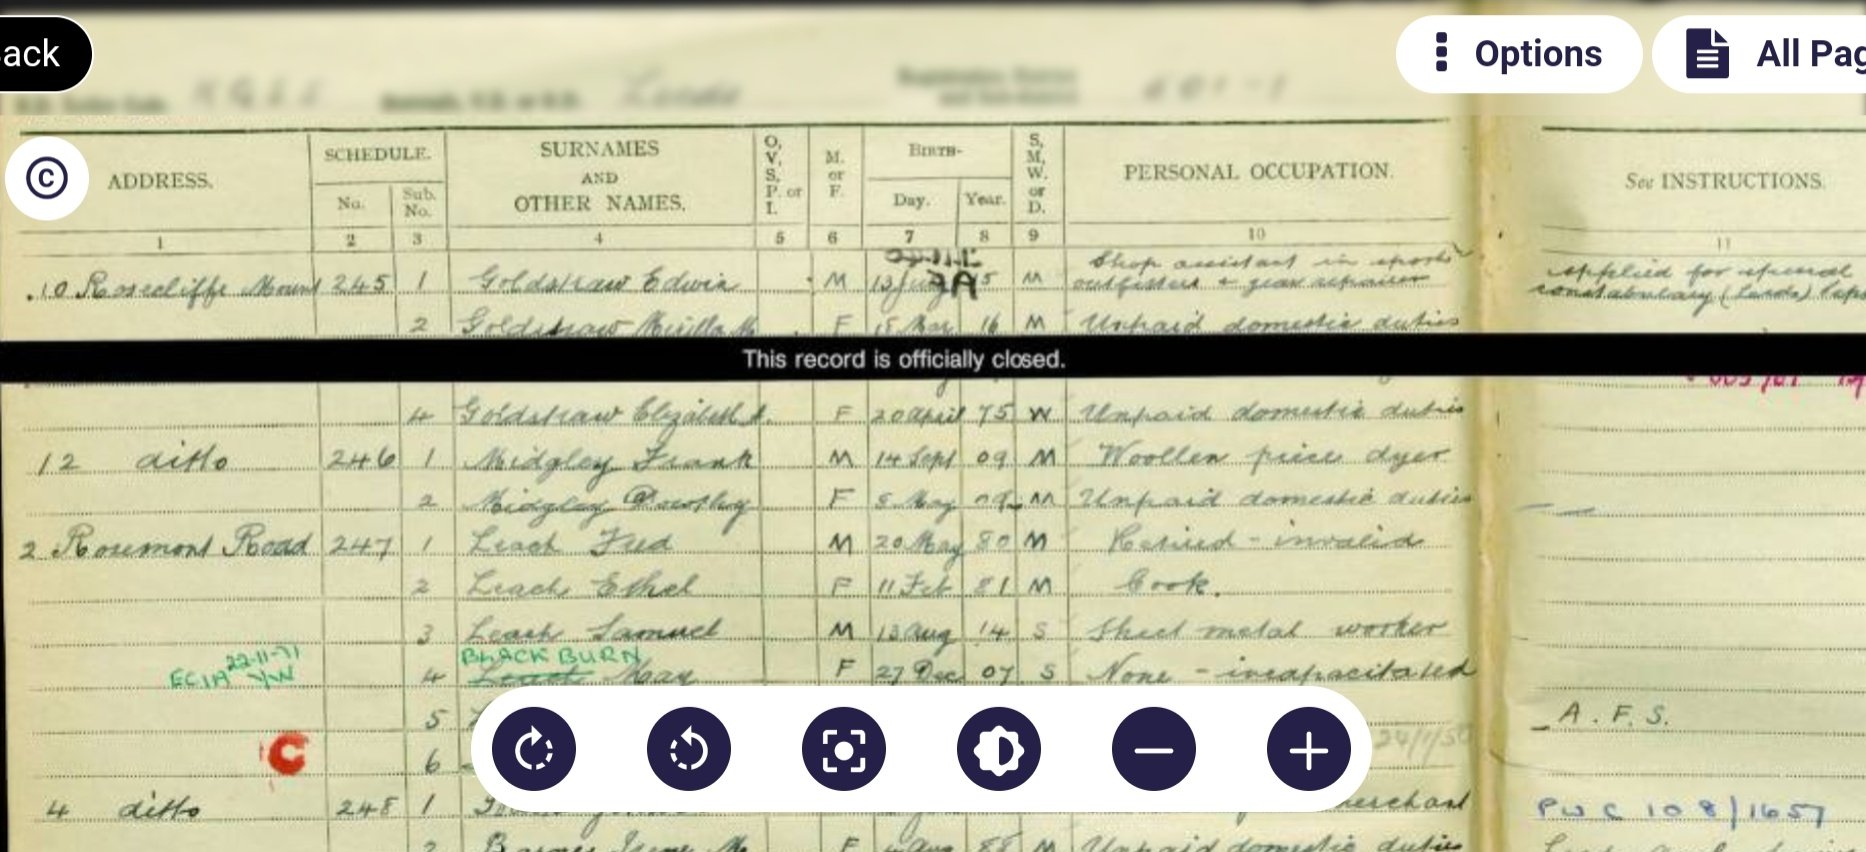 ack
Options
All Pag
Leeds
ADDRESS.
SCHEDULE.
No.
Sub. No.
SURNAMES AND OTHER NAMES.
O, V, S, P. or I.
M. or F.
BIRTH-
Day.
Year.
S, M, W. or D.
PERSONAL OCCUPATION.
See INSTRUCTIONS.
1 2 3 4 5 6 7 8 9 10 11
10 Rosecliffe Mount 245 1 Goldshaw Edwin M 13 5 M Shop assistant in sports
outfitters & gear repairer
applied for special
constabulary (Leeds)
2 Goldshaw F 15 Mar 16 M Unpaid domestic duties
This record is officially closed.
4 Goldshaw Elizabeth A. F 20 April 75 W Unpaid domestic duties
12 ditto 246 1 Midgley Frank M 14 Sept 09 M Woollen piece dyer
2 Midgley Dorothy F 8 May 09 M Unpaid domestic duties
2 Rosemont Road 247 1 Leach Fred M 20 May 80 M Retired - invalid
2 Leach Ethel F 11 Feb 81 M Cook.
3 Leach Samuel M 13 Aug 14 S Sheet metal worker
BLACKBURN
22-11-71
EC1A
4 Leach May F 27 Dec 07 S None - incapacitated
5 A.F.S.
C
6 24/1/50
4 ditto 248 1 merchant
PWC 108/1657
2 Barnes Irene M. F Aug 88 M Unpaid domestic duties